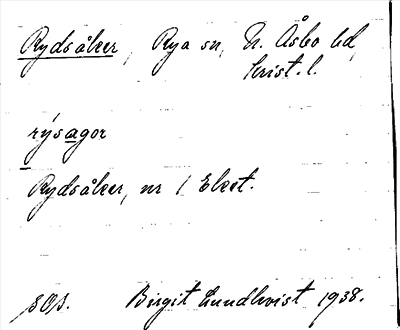 Rydsåker, Rya sn, N. Åsbo hd,
Krist. l.
rýsagor
Rydsåker, nr 1 Ekest.
Birgit Lundkvist 1938.